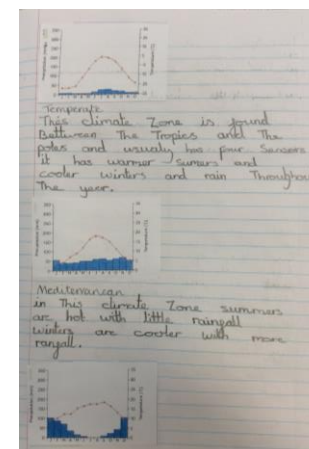 Temperate
This climate Zone is found
Bettween The Tropics and The
poles and usualy has four Seasons
it has warmer sumers and
cooler winters and rain Throughou
The year.
Mediterranean
in This climate Zone summers
are hot with little raingall
winters are cooler with more
rangall.